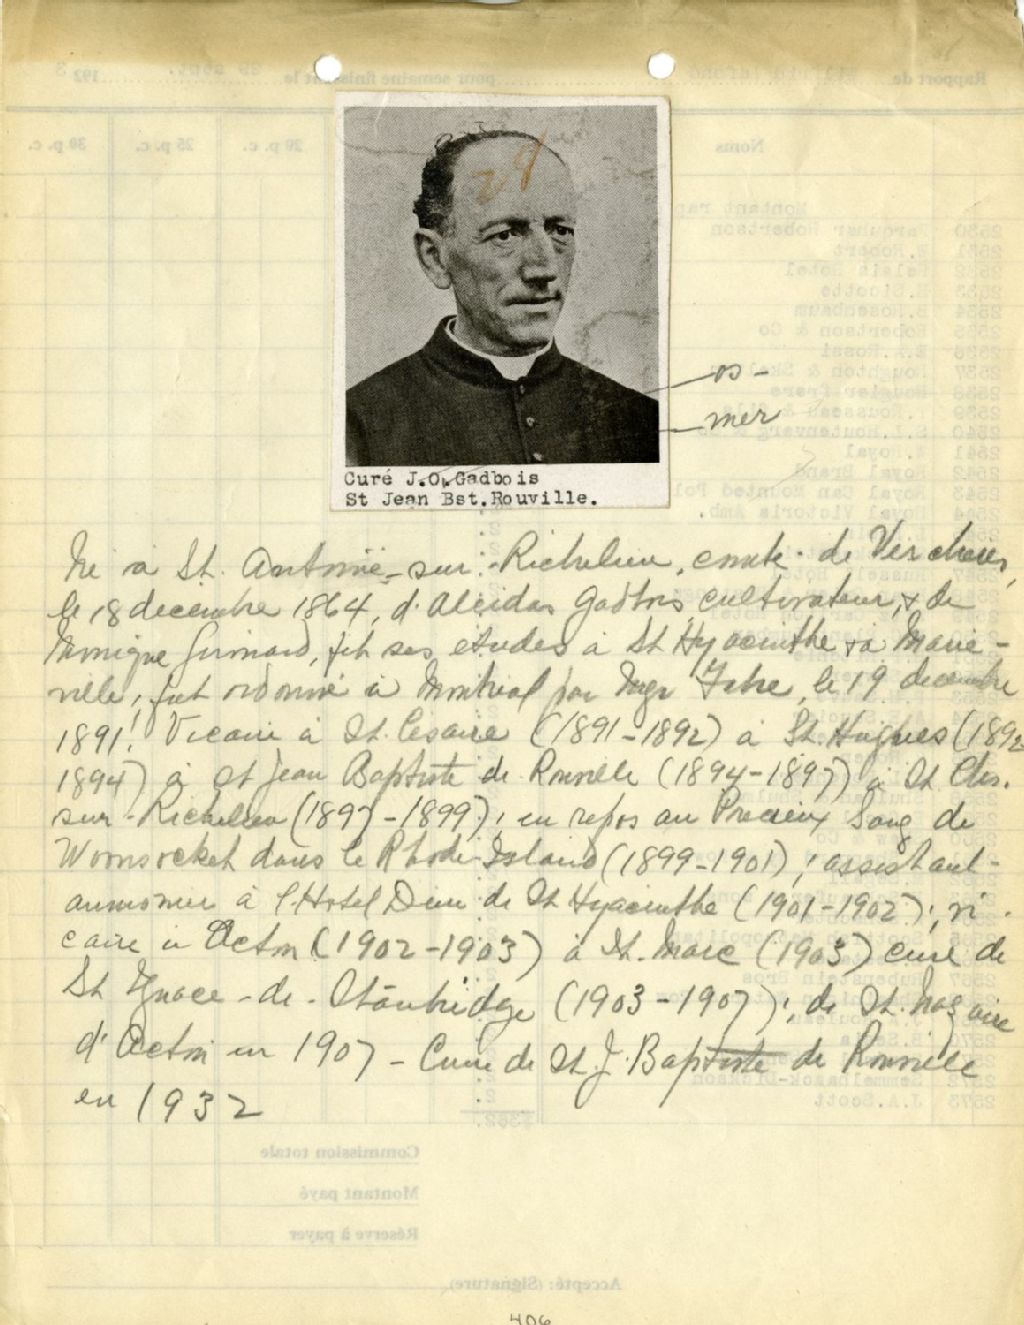 28
os-
mer
Curé J.O.Gadbois
St Jean Bst.Rouville.
Né à St. Antoine-sur-Richelieu, comté de Verchères,
le 18 decembre 1864, d'Alcidas Gadbois cultivateur, & de
Monique Guinard, fit ses etudes à St Hyacinthe & à Marie-
ville, fut ordonné à Montreal par Mgr Fabre, le 19 decembre
1891. Vicaire à St. Cesaire (1891-1892) à St. Hughes (1892
1894) à St Jean Baptiste de Rouville (1894-1897) à St Chs.
sur-Richelieu (1897-1899); en repos au Precieux Sang de
Woonsocket dans le Rhode-Island (1899-1901); assistant-
aumonier à l'Hotel Dieu de St Hyacinthe (1901-1902); vi-
caire à Acton (1902-1903) à St. Marc (1903) curé de
St Ignace-de-Stanbridge (1903-1907); de St. Nazaire
d'Acton en 1907 - Curé de St. J. Baptiste de Rouville
en 1932
406